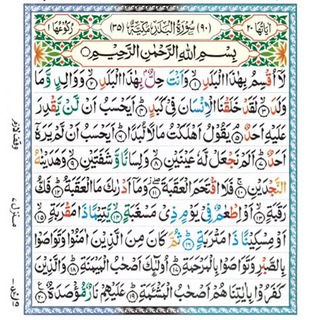 اٰيَاتُهَا ٢٠ (٩٠) سُوْرَةُ الْبَلَدِ مَكِّيَّةٌ (٣٥) رُكُوْعُهَا ١
بِسْمِ اللّٰهِ الرَّحْمٰنِ الرَّحِيْمِ
لَاۤ اُقْسِمُ بِهٰذَا الْبَلَدِ ۙ﴿١﴾ وَاَنْتَ حِلٌّۢ بِهٰذَا الْبَلَدِ ۙ﴿٢﴾ وَوَالِدٍ وَّمَا
وَلَدَ ۙ﴿٣﴾ لَقَدْ خَلَقْنَا الْاِنْسَانَ فِيْ كَبَدٍ ؕ﴿٤﴾ اَيَحْسَبُ اَنْ لَّنْ يَّقْدِرَ
عَلَيْهِ اَحَدٌ ۘ﴿٥﴾ يَقُوْلُ اَهْلَكْتُ مَالًا لُّبَدًا ؕ﴿٦﴾ اَيَحْسَبُ اَنْ لَّمْ يَرَهٗۤ
اَحَدٌ ؕ﴿٧﴾ اَلَمْ نَجْعَلْ لَّهٗ عَيْنَيْنِ ۙ﴿٨﴾ وَلِسَانًا وَّشَفَتَيْنِ ۙ﴿٩﴾ وَهَدَيْنٰهُ
النَّجْدَيْنِ ۚ﴿١٠﴾ فَلَا اقْتَحَمَ الْعَقَبَةَ ۖ﴿١١﴾ وَمَاۤ اَدْرٰىكَ مَا الْعَقَبَةُ ؕ﴿١٢﴾ فَكُّ
رَقَبَةٍ ۙ﴿١٣﴾ اَوْ اِطْعٰمٌ فِيْ يَوْمٍ ذِيْ مَسْغَبَةٍ ۙ﴿١٤﴾ يَّتِيْمًا ذَا مَقْرَبَةٍ ۙ﴿١٥﴾
اَوْ مِسْكِيْنًا ذَا مَتْرَبَةٍ ؕ﴿١٦﴾ ثُمَّ كَانَ مِنَ الَّذِيْنَ اٰمَنُوْا وَتَوَاصَوْا
بِالصَّبْرِ وَتَوَاصَوْا بِالْمَرْحَمَةِ ؕ﴿١٧﴾ اُولٰٓئِكَ اَصْحٰبُ الْمَيْمَنَةِ ؕ﴿١٨﴾ وَالَّذِيْنَ
كَفَرُوْا بِاٰيٰتِنَا هُمْ اَصْحٰبُ الْمَشْـَٔمَةِ ؕ﴿١٩﴾ عَلَيْهِمْ نَارٌ مُّؤْصَدَةٌ ﴿٢٠﴾